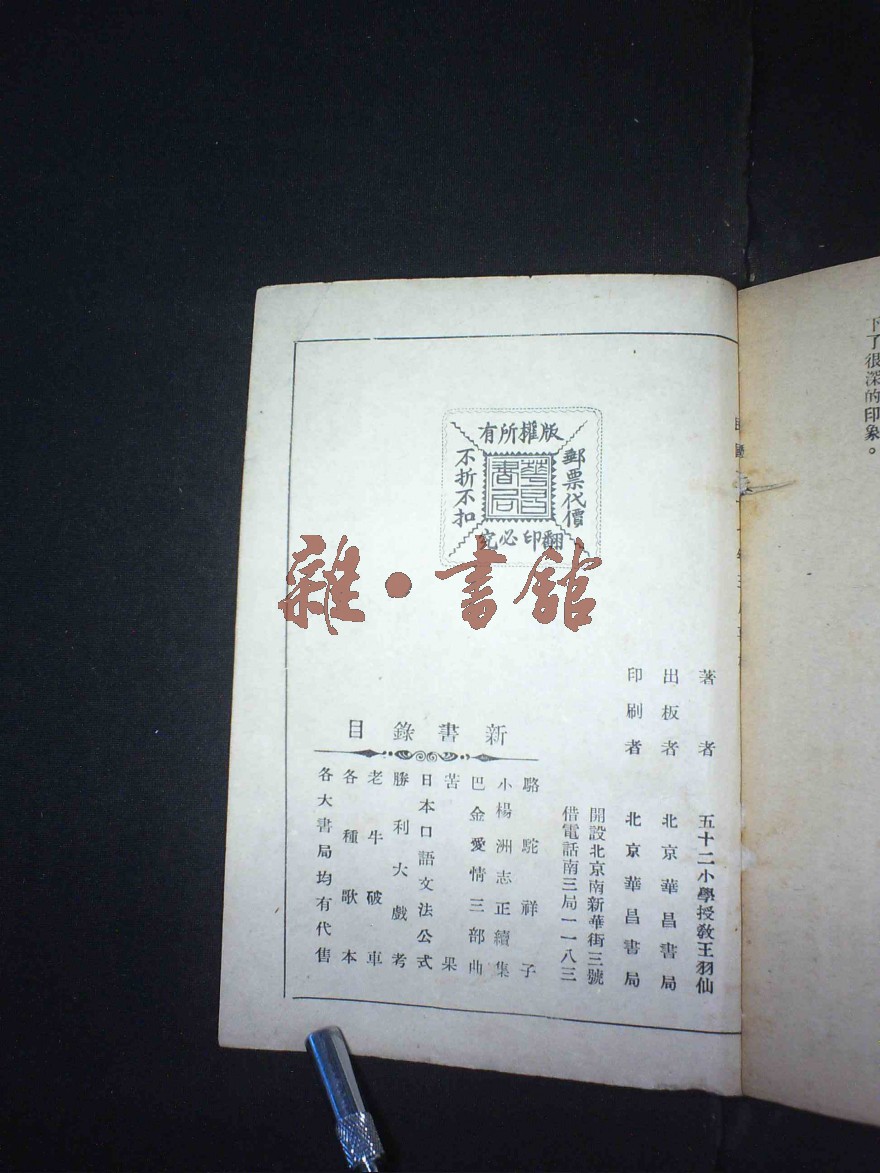 下了很深的印象。
版權所有
郵票代價
不折不扣
翻印必究
華昌書局
雜·書館
著者 五十二小學授教王羽仙
出板者 北京華昌書局
印刷者 北京華昌書局
開設北京南新華街三號
借電話南三局一一八三
新書錄目
駱駝祥子
小楊洲志正續集
巴金愛情三部曲
苦果
日本口語文法公式
勝利大戲考
老牛破車
各種歌本
各大書局均有代售